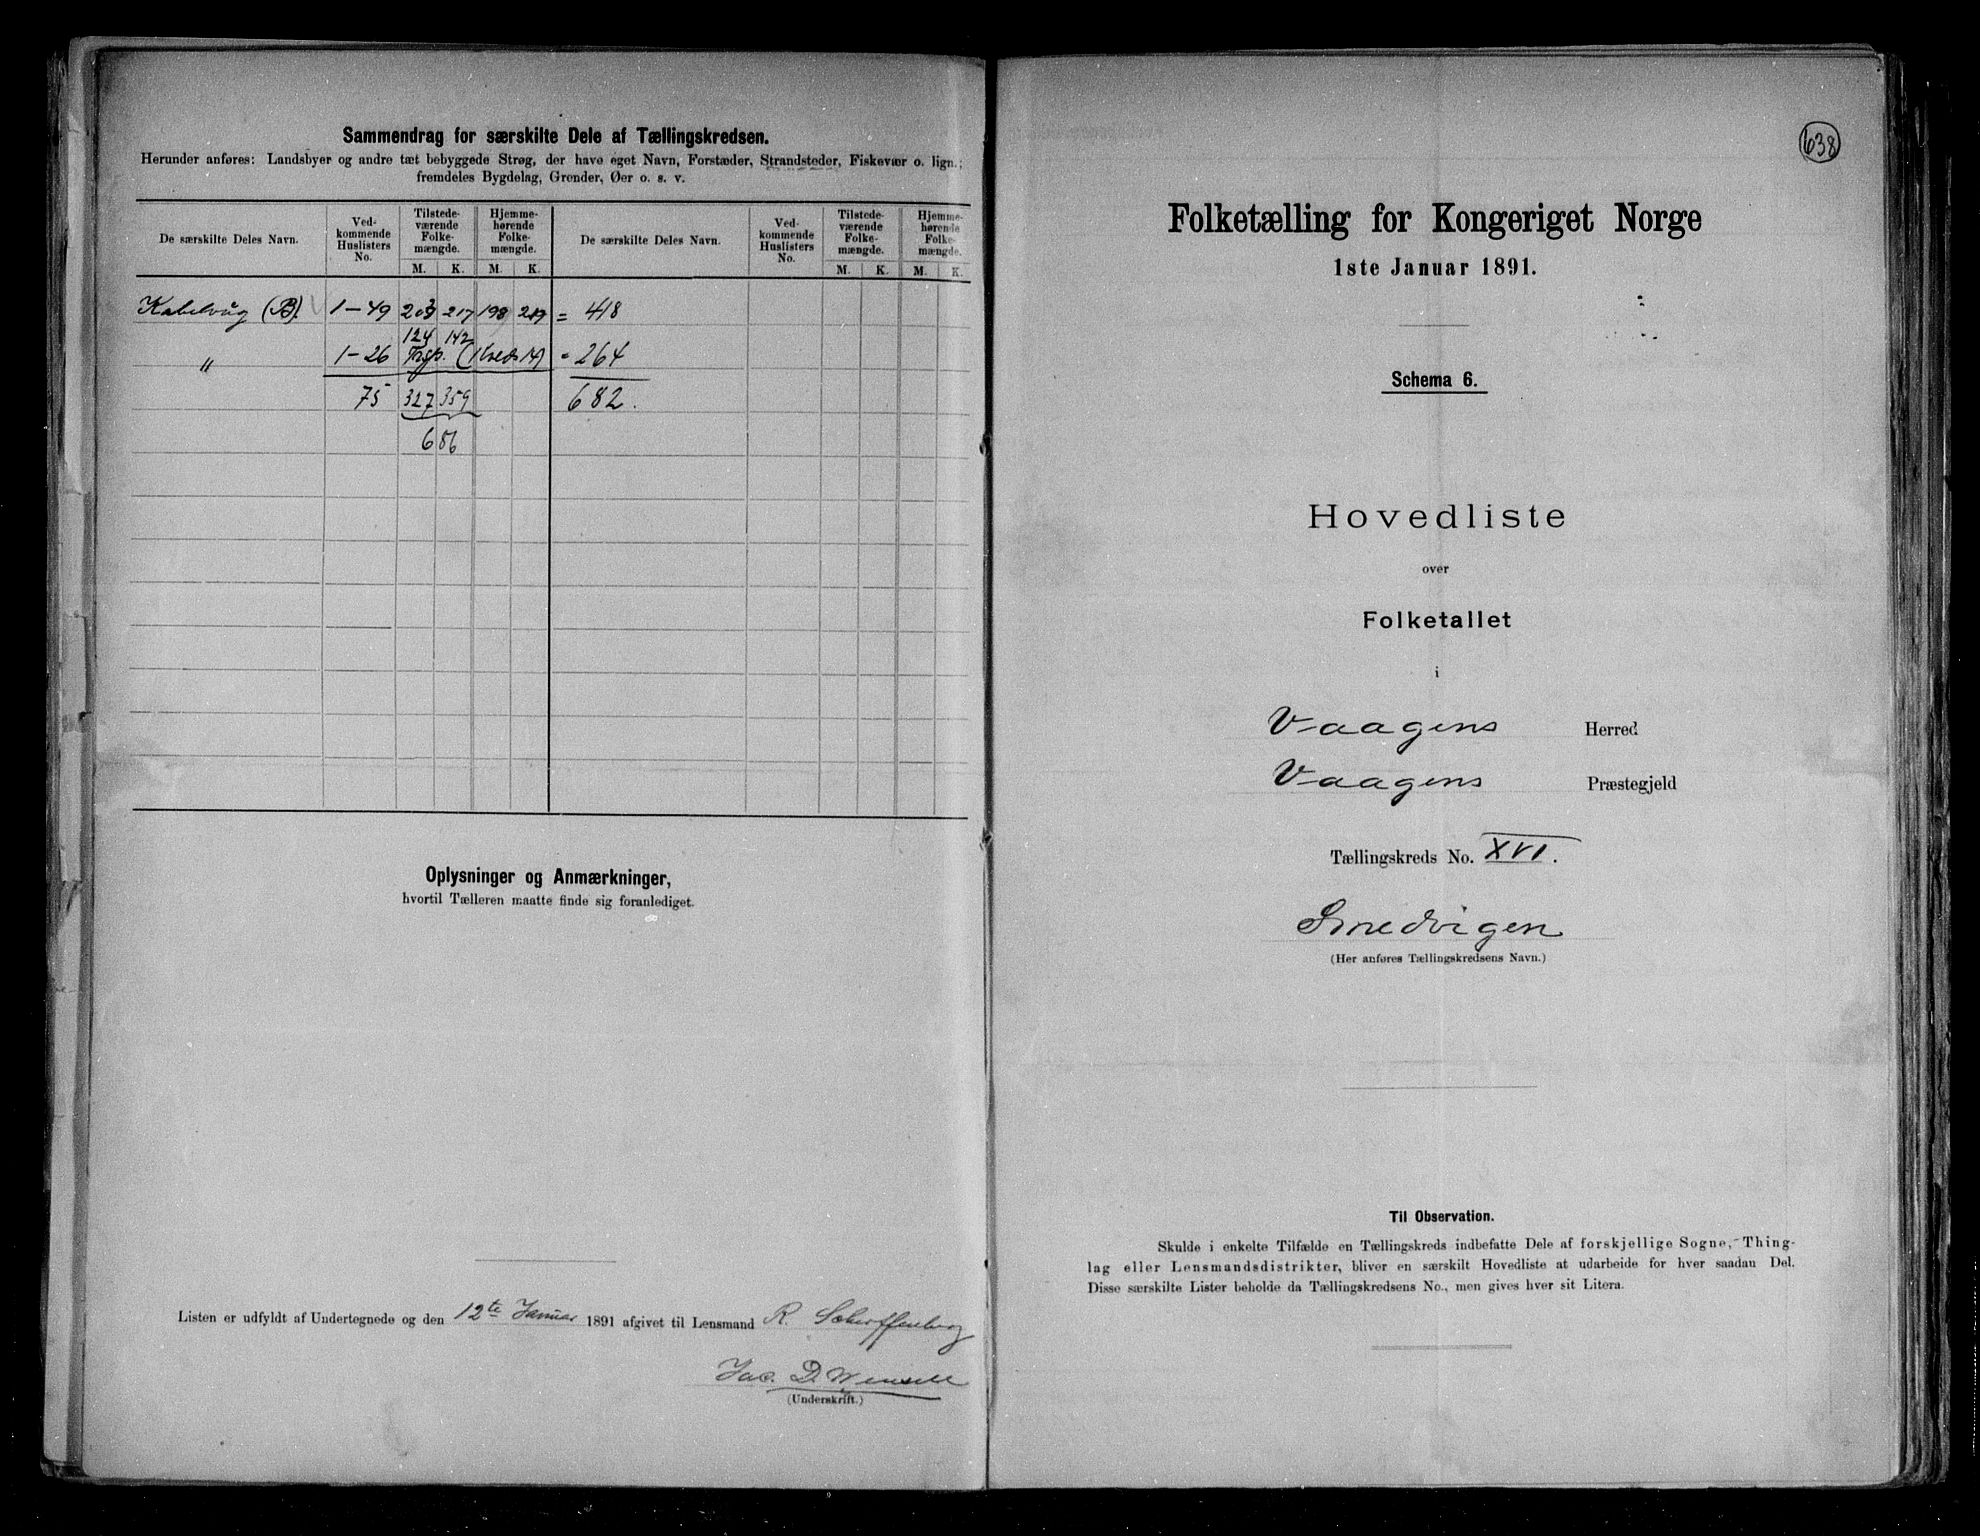 Sammendrag for særskilte Dele af Tællingskredsen.
Herunder anføres: Landsbyer og andre tæt bebyggede Strøg, der have eget Navn, Forstæder, Strandsteder, Fiskevær o. lign.;
fremdeles Bygdelag, Grender, Øer o. s. v.
De særskilte Deles Navn. Ved-kommende Huslisters No. Tilstede-værende Folke-mængde. Hjemme-hørende Folke-mængde. De særskilte Deles Navn. Ved-kommende Huslisters No. Tilstede-værende Folke-mængde. Hjemme-hørende Folke-mængde.
M. K. M. K. M. K. M. K.
Kabelvåg (B). 1-49 203 217 198 219 = 418
124 142
" 1-26 (Kreds 14) = 264
75 327 359 682.
686
Oplysninger og Anmærkninger,
hvortil Tælleren maatte finde sig foranlediget.
Listen er udfyldt af Undertegnede og den 12te Januar 1891 afgivet til Lensmand R. Scheffenberg
Jac. D.
(Underskrift.)
638
Folketælling for Kongeriget Norge
1ste Januar 1891.
Schema 6.
Hovedliste
over
Folketallet
i
Vaagens Herred
Vaagens Præstegjeld
Tællingskreds No. XVI.
Smedvigen
(Her anføres Tællingskredsens Navn.)
Til Observation.
Skulde i enkelte Tilfælde en Tællingskreds indbefatte Dele af forskjellige Sogne, Thing-
lag eller Lensmandsdistrikter, bliver en særskilt Hovedliste at udarbeide for hver saadan Del.
Disse særskilte Lister beholde da Tællingskredsens No., men gives hver sit Litera.